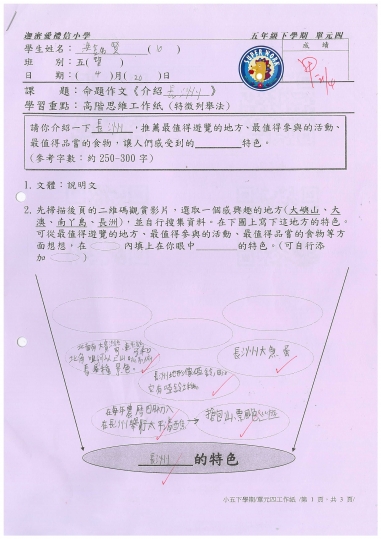 迦密愛禮信小學 五年級下學期 單元四
學生姓名：
成績
班 別：五( )
日 期：( 4 )月(20)日
SUPER WORK
課 題：命題作文《介紹 長洲 》
學習重點：高階思維工作紙（特徵列舉法）
請你介紹一下 長洲 ，推薦最值得遊覽的地方、最值得參與的活動、
最值得品嘗的食物，讓人們感受到的________特色。
（參考字數：約 250-300 字）
1. 文體：說明文
2. 先掃描後頁的二維碼觀賞影片，選取一個感興趣的地方(大嶼山、大
澳、南丫島、長洲)，並自行搜集資料。在下圖上寫下這地方的特色。
可從最值得遊覽的地方、最值得參與的活動、最值得品嘗的食物等方
面想想，在 內填上在你眼中______的特色。(可自行添
加 )
長洲大魚蛋
在每年農曆四月初八
在長洲舉行太平清醮 → 搶包山
長洲 的特色
小五下學期/單元四工作紙 /第 1 頁，共 3 頁/